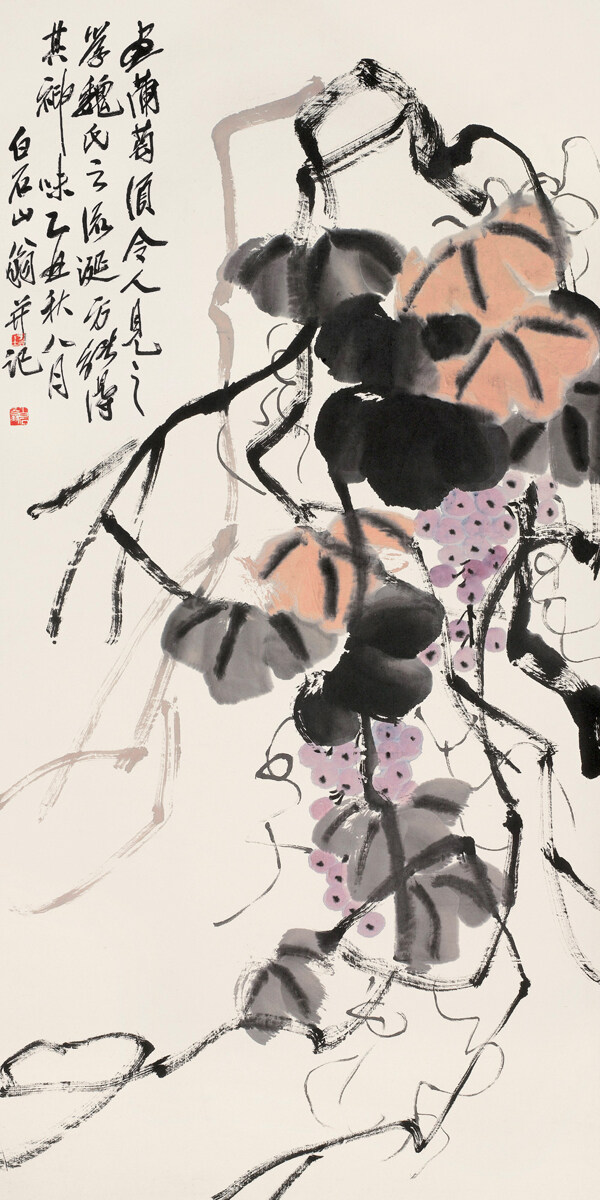 画蒲萄須令人見之
学魏氏之流涎方能得
其神味乙丑秋八月
白石山翁并記